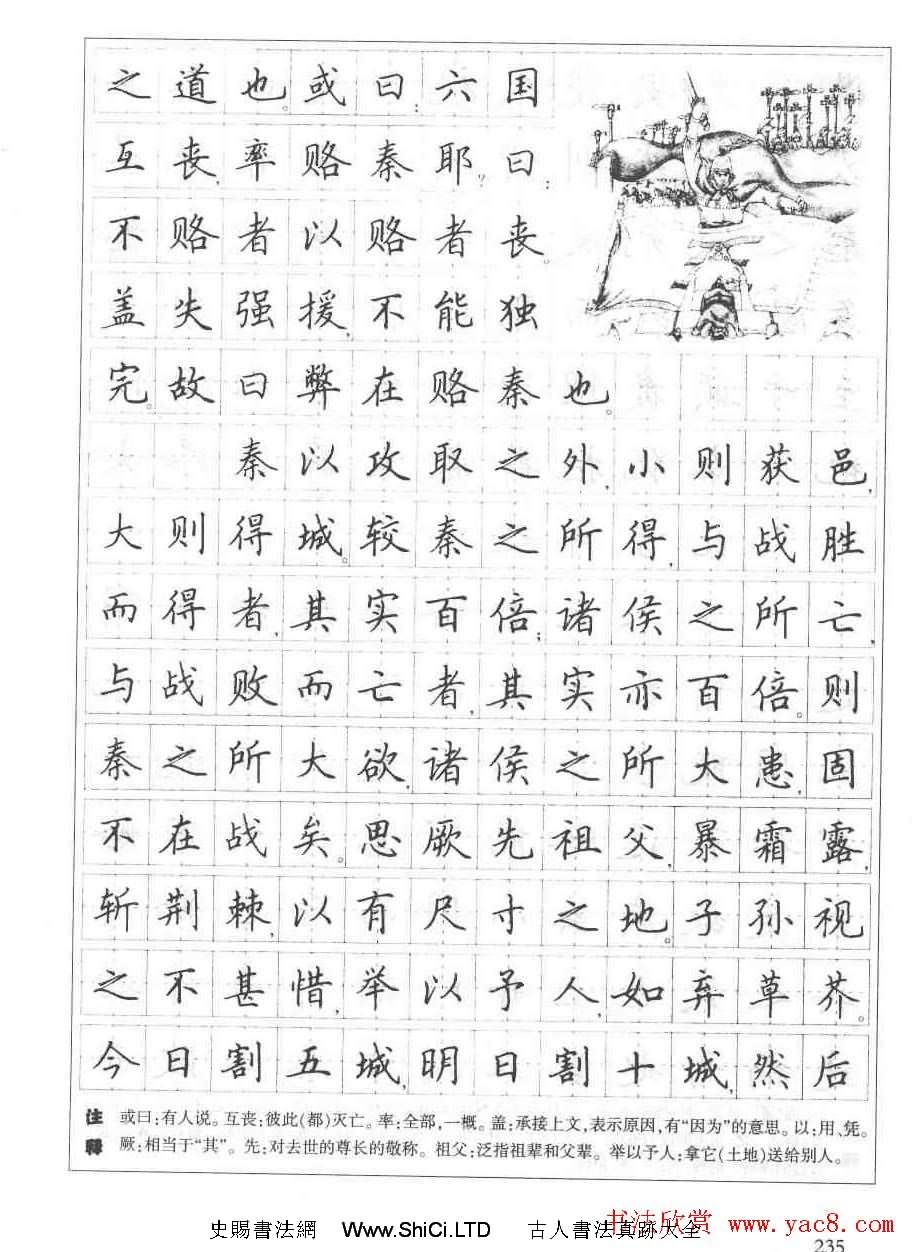 之道也。或曰:六国
互丧,率赂秦耶?曰:
不赂者以赂者丧
盖失强援,不能独
完。故曰弊在赂秦也。
秦以攻取之外,小则获邑,
大则得城。较秦之所得,与战胜
而得者,其实百倍;诸侯之所亡,
与战败而亡者,其实亦百倍。则
秦之所大欲,诸侯之所大患,固
不在战矣。思厥先祖父,暴霜露,
斩荆棘,以有尺寸之地。子孙视
之不甚惜,举以予人,如弃草芥。
今日割五城,明日割十城,然后
注释
或曰:有人说。互丧:彼此(都)灭亡。率:全部,一概。盖:承接上文,表示原因,有“因为”的意思。以:用、凭。
厥:相当于“其”。先:对去世的尊长的敬称。祖父:泛指祖辈和父辈。举以予人:拿它(土地)送给别人。
史賜書法網 Www.ShiCi.LTD 古人書法真跡大全
书法欣赏 www.yac8.com
235